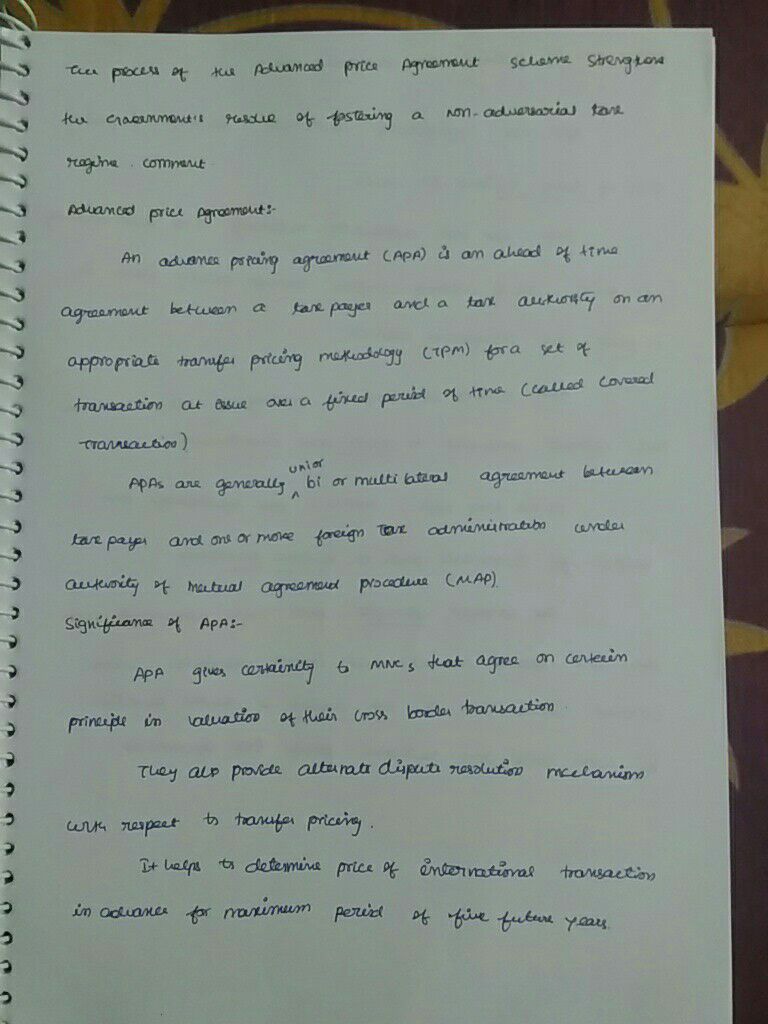 The process of the Advanced price Agreement scheme strengthens
the Government's resolve of fostering a non-adversarial tax
regime. comment.
Advanced price Agreement:-
An advance pricing agreement (APA) is an ahead of time
agreement between a tax payer and a tax authority on an
appropriate transfer pricing methodology (TPM) for a set of
transaction at issue over a fixed period of time (called covered
transaction)
APAs are generally uni or bi or multilateral agreement between
tax payer and one or more foreign Tax administration under
authority of mutual agreement procedure (MAP).
Significance of APA:-
APA gives certainity to MNCs that agree on certain
principle in valuation of their cross border transaction.
They also provide alternate dispute resolution mechanism
with respect to transfer pricing.
It helps to determine price of international transaction
in advance for maximum period of five future years.